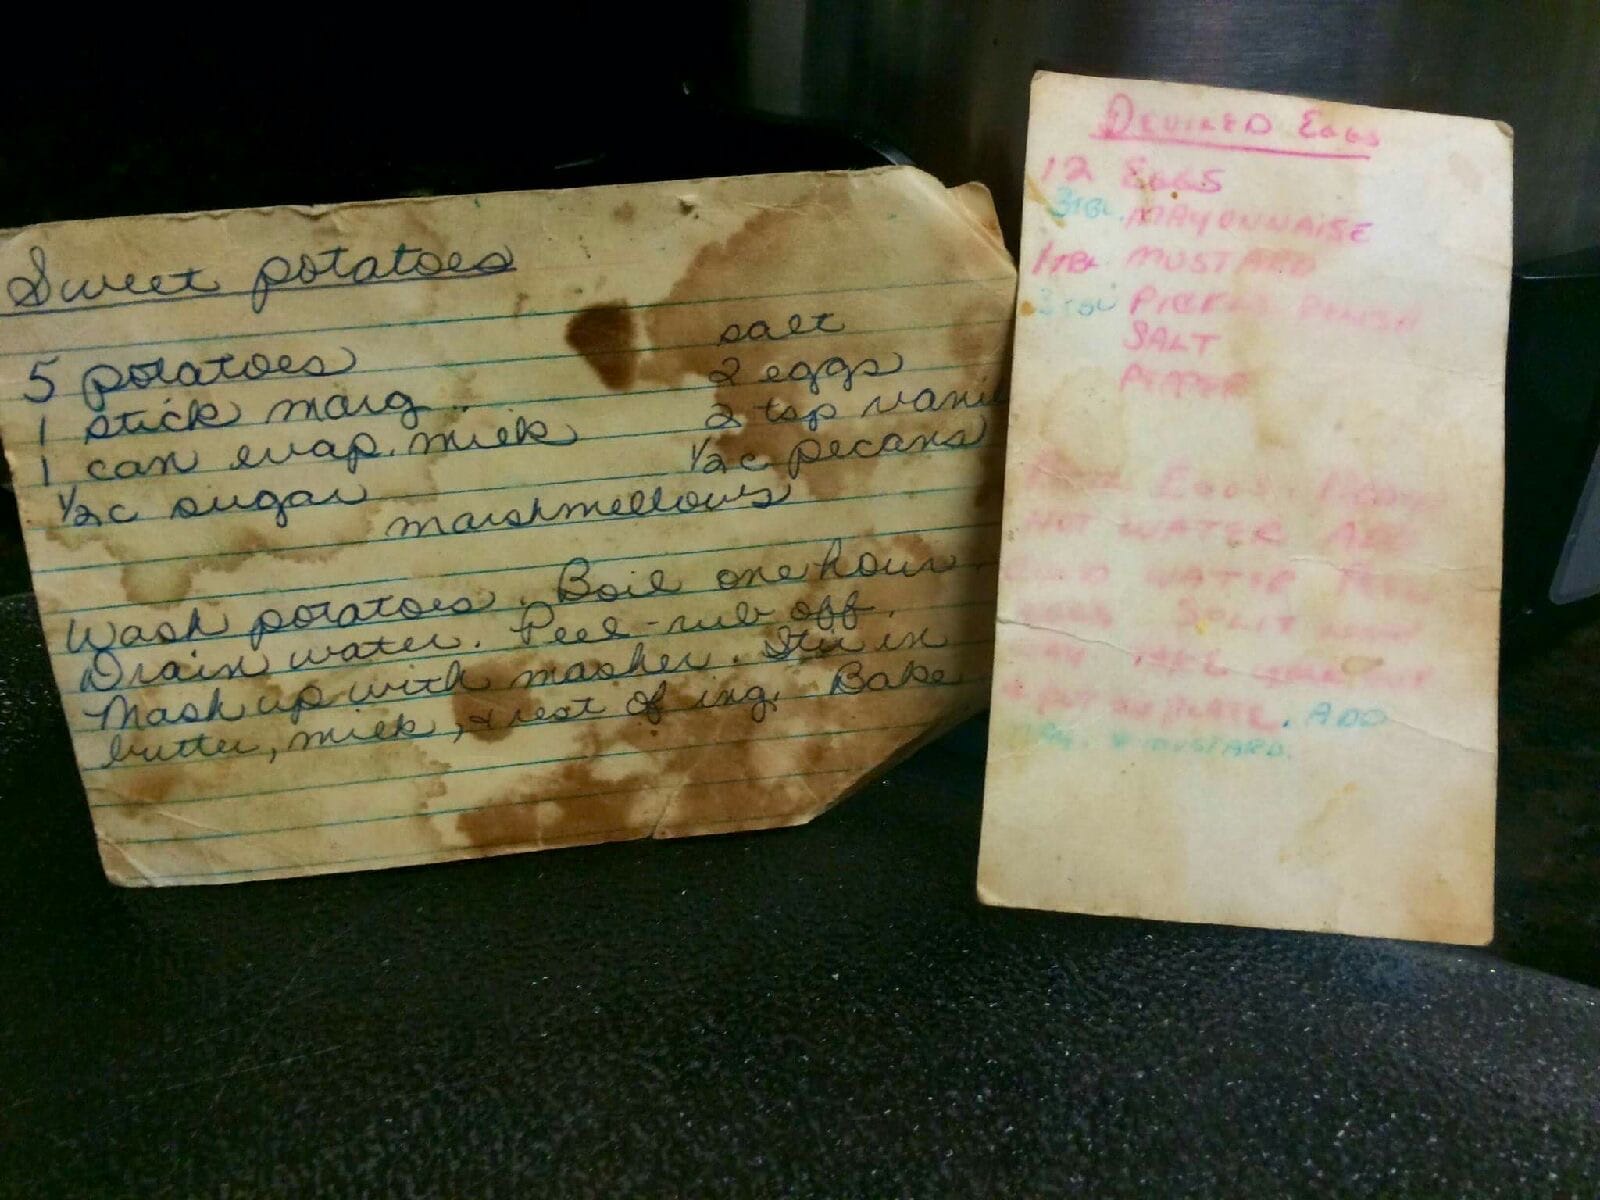 Sweet potatoes
5 potatoes
1 stick marg.
1 can evap. milk
1/2 c sugar
salt
2 eggs
2 tsp vani
1/2 c pecans
marshmellows
Wash potatoes. Boil one hour.
Drain water. Peel - rub off.
Mash up with masher. Stir in
butter, milk, & rest of ing. Bake
DEVILED EGGS
12 EGGS
3 TBL. MAYONNAISE
1 TBL MUSTARD
3 TBL PICKLE RELISH
SALT
PEPPER
EGGS.
HOT WATER ADD
COLD WATER
EGGS SPLIT
PUT ON PLATE. ADD
& MUSTARD.